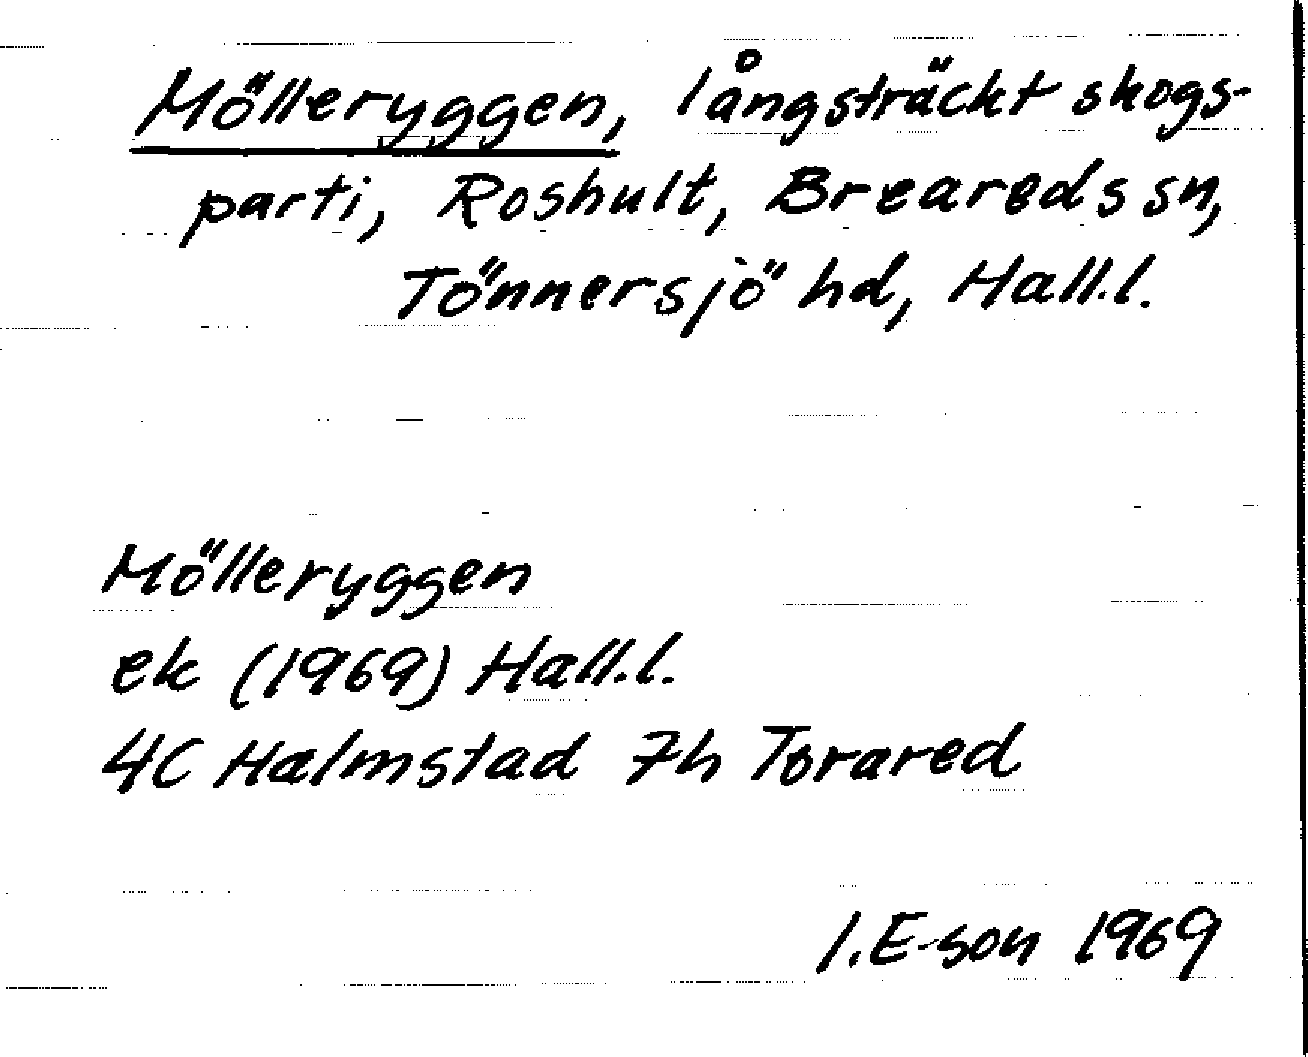 Mölleryggen, långsträckt skogs-
parti, Roshult, Breareds sn,
Tönnersjö hd, Hall.l.
Mölleryggen
ek (1969) Hall.l.
4C Halmstad 7h Torared
I.E-son 1969